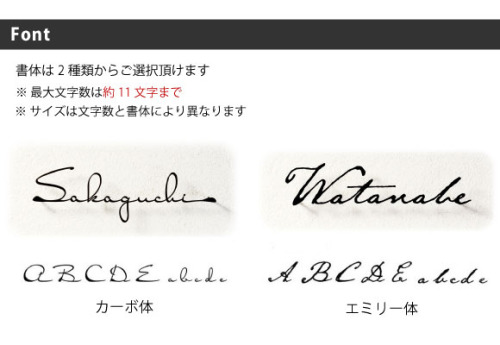 Font
書体は2種類からご選択頂けます
※ 最大文字数は約11文字まで
※ サイズは文字数と書体により異なります
Sakaguchi
Watanabe
A B C D E a b c d e
A B C D E a b c d e
カーボ体
エミリー体